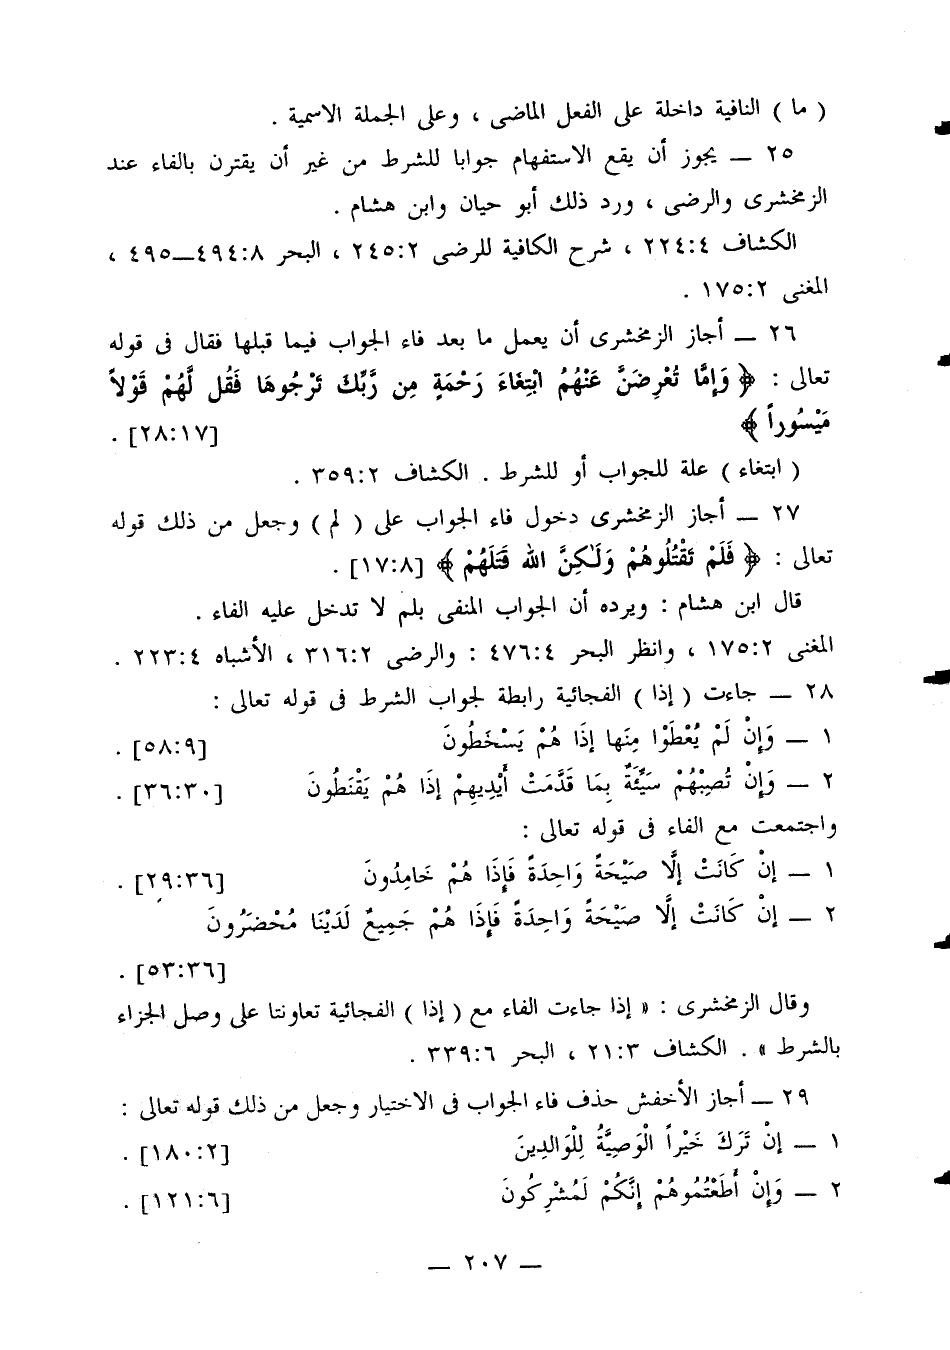 ( ما ) النافية داخلة على الفعل الماضى ، وعلى الجملة الاسمية .
٢٥ — يجوز أن يقع الاستفهام جوابا للشرط من غير أن يقترن بالفاء عند
الزمخشرى والرضى ، ورد ذلك أبو حيان وابن هشام .
الكشاف ٢٢٤:٤ ، شرح الكافية للرضى ٢٤٥:٢ ، البحر ٤٩٤:٨—٤٩٥ ،
المغنى ١٧٥:٢ .
٢٦ — أجاز الزمخشرى أن يعمل ما بعد فاء الجواب فيما قبلها فقال فى قوله
تعالى : ﴿ وَإِمَّا تُعْرِضَنَّ عَنْهُمُ ابْتِغَاءَ رَحْمَةٍ مِن رَّبِّكَ تَرْجُوهَا فَقُل لَّهُمْ قَوْلاً
مَيْسُوراً ﴾ [٢٨:١٧] .
( ابتغاء ) علة للجواب أو للشرط . الكشاف ٣٥٩:٢ .
٢٧ — أجاز الزمخشرى دخول فاء الجواب على ( لم ) وجعل من ذلك قوله
تعالى : ﴿ فَلَمْ تَقْتُلُوهُمْ وَلَكِنَّ اللهَ قَتَلَهُمْ ﴾ [١٧:٨] .
قال ابن هشام : ويرده أن الجواب المنفى بلم لا تدخل عليه الفاء .
المغنى ١٧٥:٢ ، وانظر البحر ٤٧٦:٤ : والرضى ٣١٦:٢ ، الأشباه ٢٢٣:٤ .
٢٨ — جاءت ( إذا ) الفجائية رابطة لجواب الشرط فى قوله تعالى :
١ — وَإِنْ لَمْ يُعْطَوْا مِنَها إِذَا هُمْ يَسْخَطُونَ [٥٨:٩] .
٢ — وَإِنْ تُصِبْهُمْ سَيِّئَةٌ بِمَا قَدَّمَتْ أَيْدِيهِمْ إِذَا هُمْ يَقْنَطُونَ [٣٦:٣٠] .
واجتمعت مع الفاء فى قوله تعالى :
١ — إِنْ كَانَتْ إلَّا صَيْحَةً وَاحِدَةً فَإِذَا هُمْ خَامِدُونَ [٢٩:٣٦] .
٢ — إِنْ كَانَتْ إلَّا صَيْحَةً وَاحِدَةً فَإِذَا هُمْ جَمِيعٌ لَدَيْنَا مُحْضَرُونَ
[٥٣:٣٦] .
وقال الزمخشرى : « إذا جاءت الفاء مع ( إذا ) الفجائية تعاونتا على وصل الجزاء
بالشرط » . الكشاف ٢١:٣ ، البحر ٣٣٩:٦ .
٢٩ — أجاز الأخفش حذف فاء الجواب فى الاختيار وجعل من ذلك قوله تعالى :
١ — إِنْ تَرَكَ خَيْراً الْوَصِيَّةُ لِلْوَالِدِينَ [١٨٠:٢] .
٢ — وَإِنْ أَطَعْتُمُوهُمْ إِنَّكُمْ لَمُشْرِكُونَ [١٢١:٦] .
— ٢٠٧ —